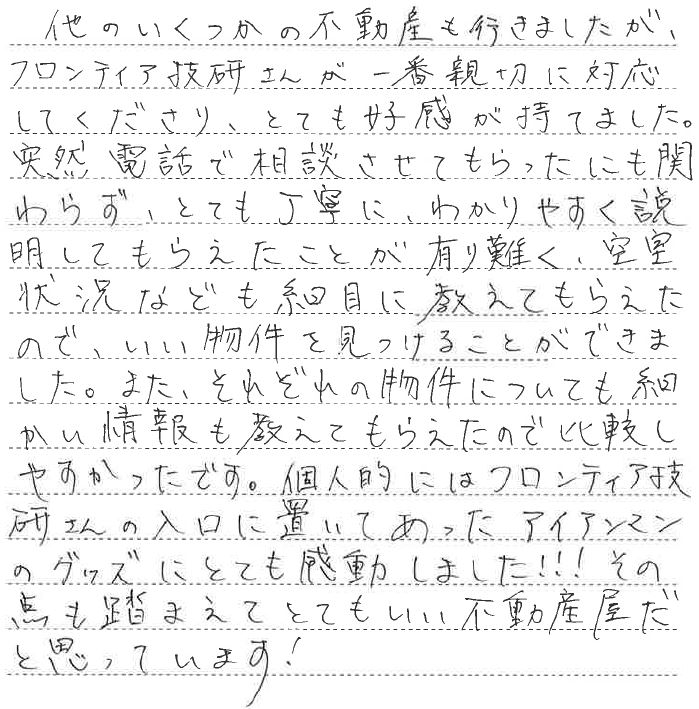 他のいくつかの不動産も行きましたが、
フロンティア技研さんが一番親切に対応
してくださり、とても好感が持てました。
突然電話で相談させてもらったにも関
わらず、とても丁寧に、わかりやすく説
明してもらえたことが有り難く、空室
状況なども細目に教えてもらえた
ので、いい物件を見つけることができま
した。また、それぞれの物件についても細
かい情報も教えてもらえたので比較し
やすかったです。個人的にはフロンティア技
研さんの入口に置いてあったアイアンマン
のグッズにとても感動しました!!! その
点も踏まえてとてもいい不動産屋だ
と思っています!